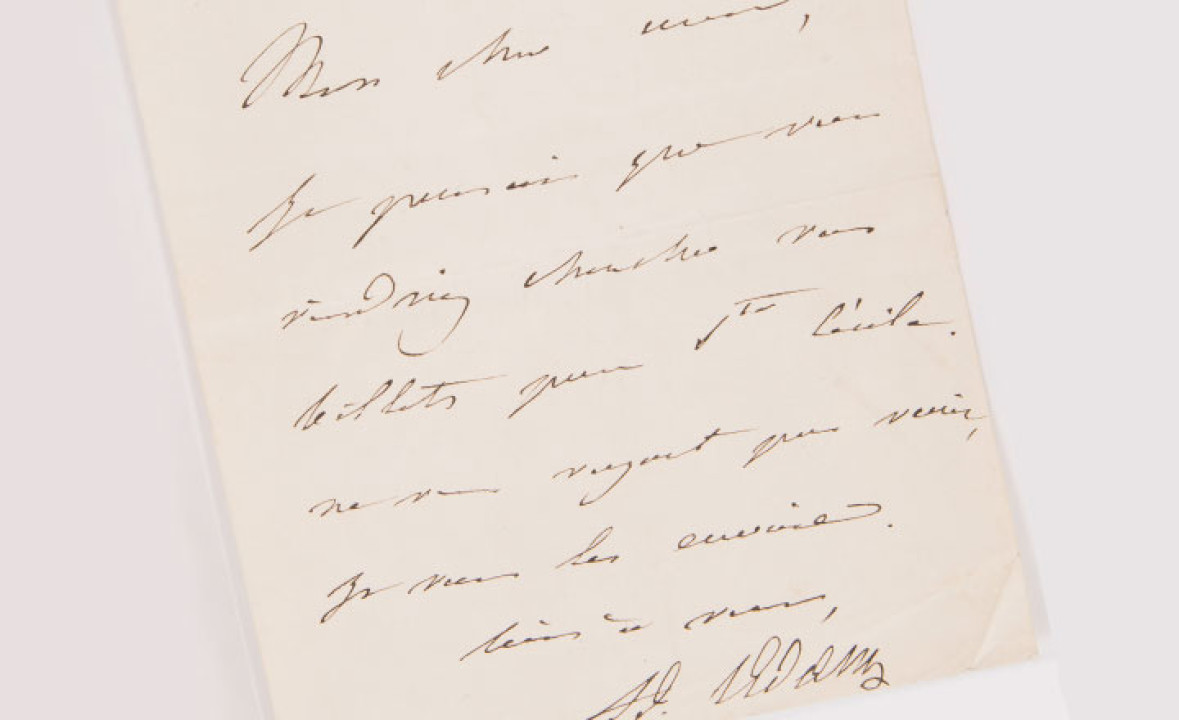 Mon cher ami,
Je pensais que vous
viendriez chercher vos
billets pour Ste Cécile.
ne vous voyant pas venir,
je vous les envoie.
tout à vous,
Ad. Adam